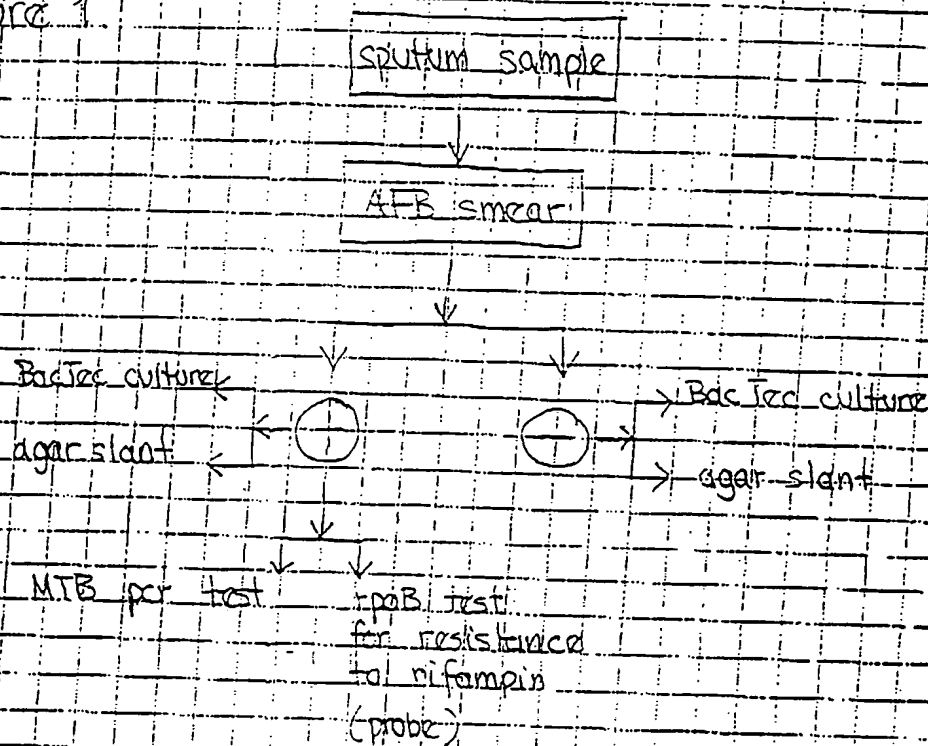 sputum sample
AFB smear
BacTec culture
BacTec culture
agar slant
agar slant
+
-
MTB pcr test
rpoB test
for resistance
to rifampin
(probe)